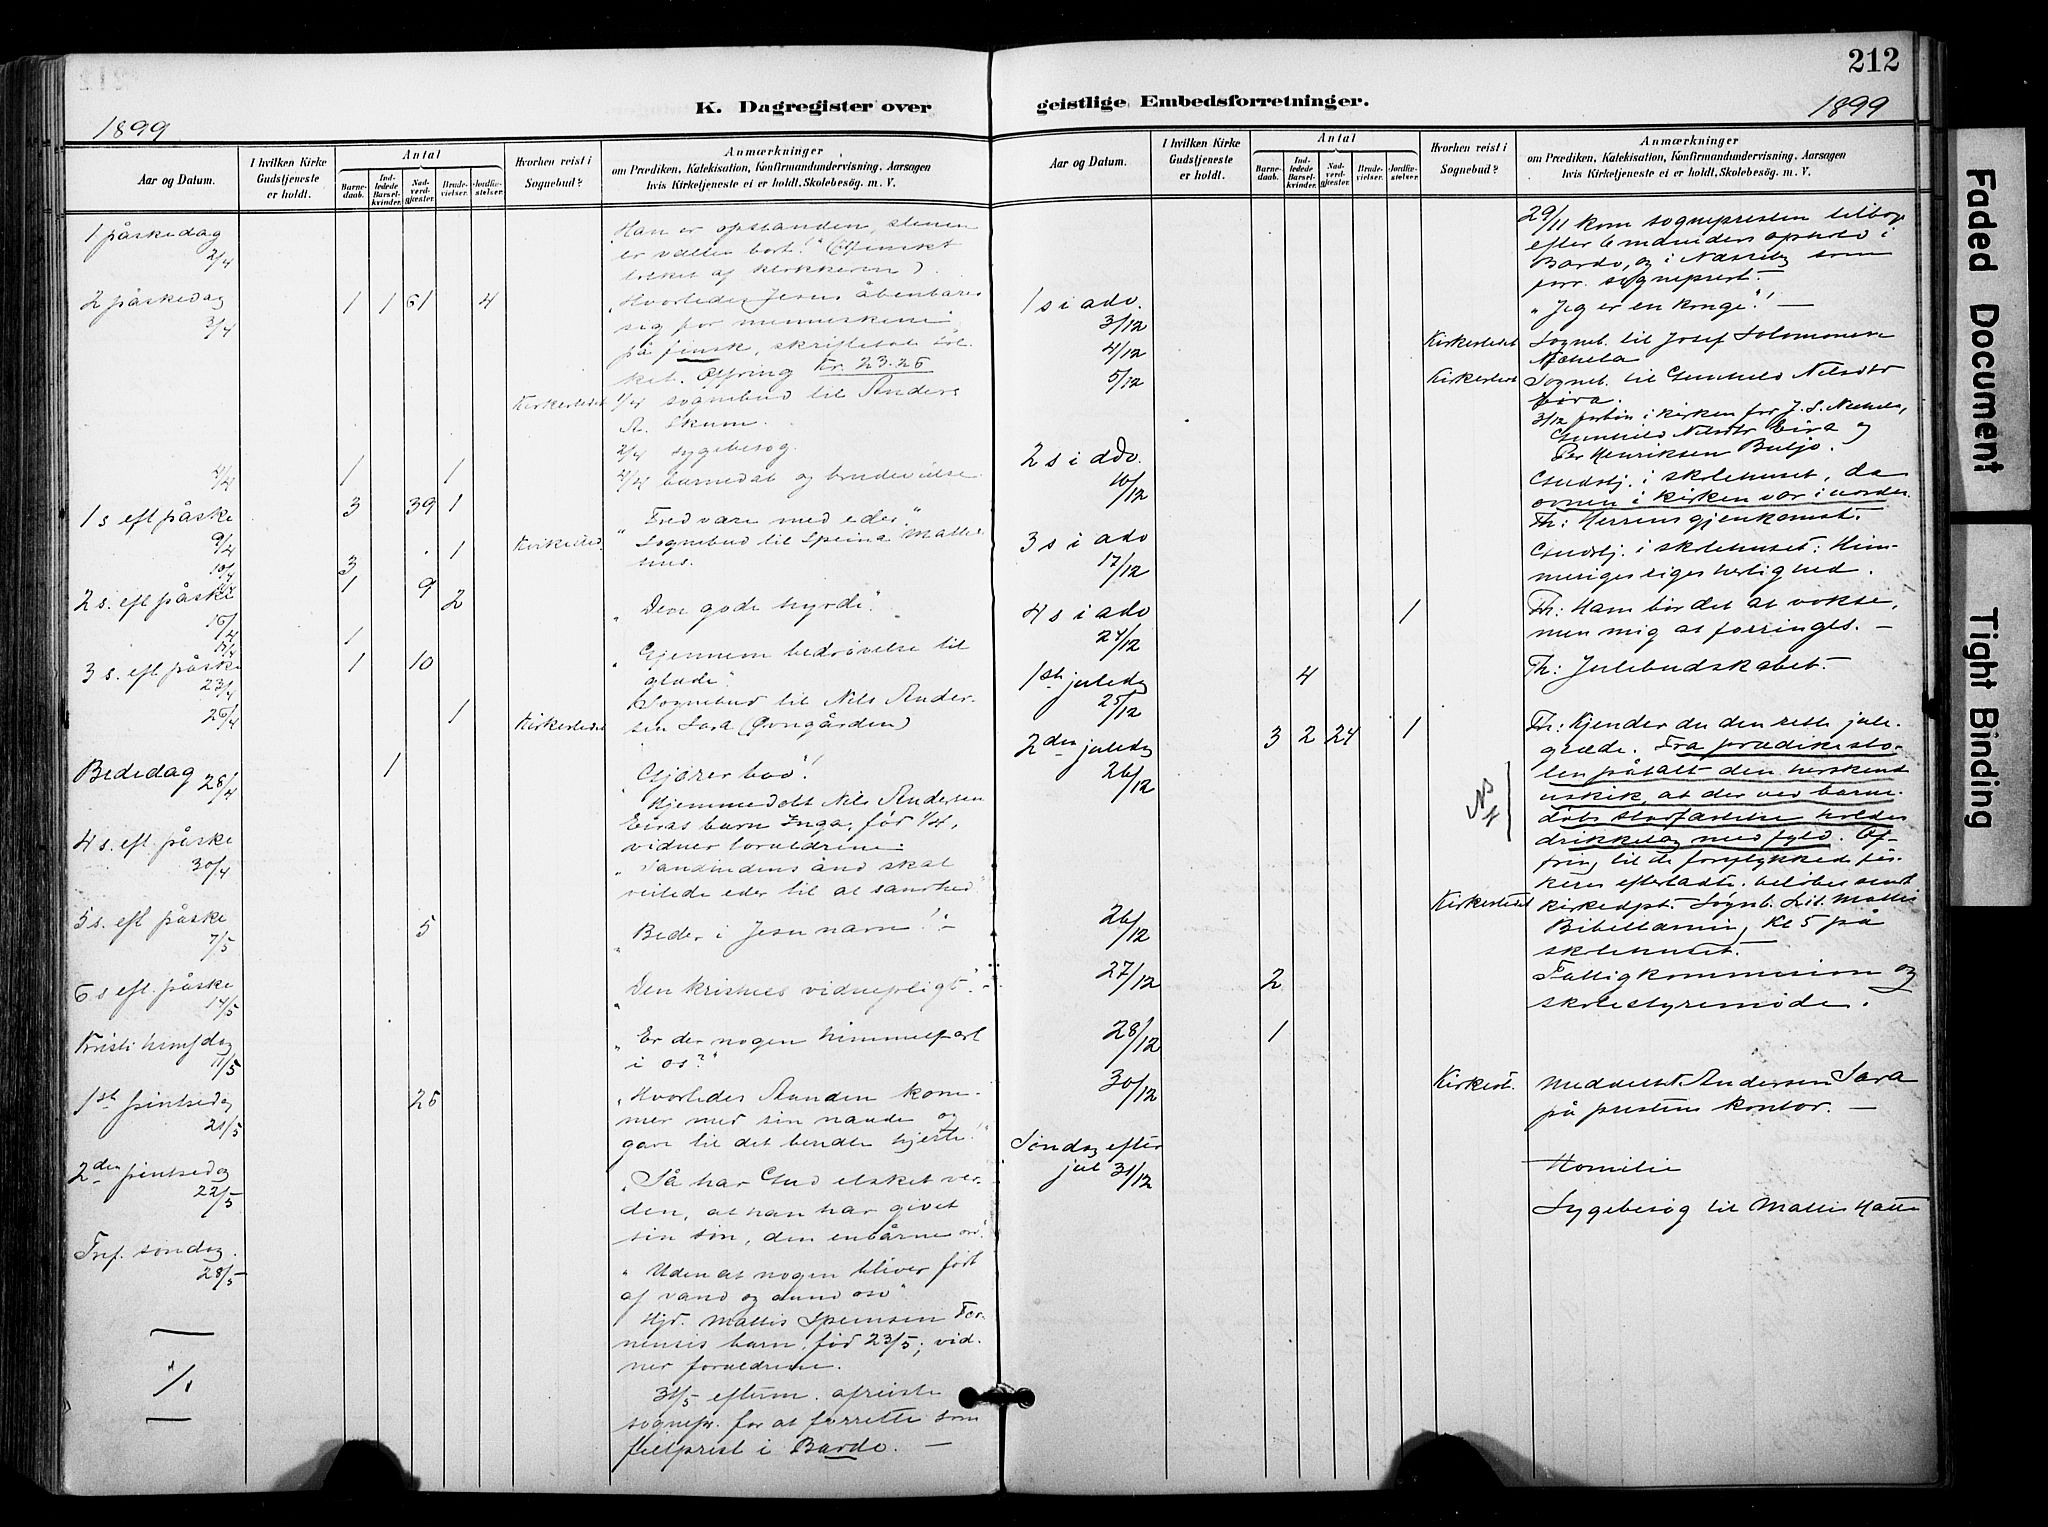 212
K. Dagregister over geistlige Embedsforretninger.
1899
1899
Aar og Datum.
I hvilken Kirke Gudstjeneste er holdt.
Antal
Barne-daab.
Ind-ledede Barsel-kvinder.
Nad-verd-gjæster.
Brude-vielser.
Jordfæ-stelser.
Hvorhen reist i Sognebud?
Anmærkninger
om Prædiken, Katekisation, Konfirmandundervisning, Aarsagen
hvis Kirketjeneste ei er holdt, Skolebesøg. m. V.
1 påskedag
2/4
Han er opstanden, stenen
er væltet bort!"
tolket af kirkesen).
2 påskedag
3/4
1 1 61 4
"Hvorledes Jesus åbenbarer
sig for menneskene"
på finsk, skriftetale tol-
ket. Offring Kr. 23.26
Kirkestedet 1/4 sognebud til Anders
A. Skum.
2/4 sygebesøg.
4/4 1 1 4/4 barnedåb og brudevielse
1 s. eft påske 3 39 1
9/4
"Fred være med eder".
Kirkested. Sognebud til Speina Mattis
hus.
10/4 3 1
2 s. eft. påske 1 9 2
16/4
"Den gode hyrde".
17/4 1
3 s. eft. påske 1 10
23/4
"Gjennem bedrøvelse til
glæde".
26/4 1 Kirkestedet
Sognebud til Nils Ander-
sen Sara (Øvngården)
Bededag 28/4 1
"Gjører bod"!
Hjemmedøbt Nils Andersen
Eiras barn Inga, før 1/4,
vidner forældrene.
4 s. eft. påske
30/4
"Sandhedens ånd skal
veilede eder til al sandhed"
5 s. eft påske 5
7/5
"Beder i Jesu navn!"-
6 s eft. påske
14/5
"Den kristnes vidnepligt".-
Kristi himf dag
11/5
"Er der nogen himmelfart
i os?"
1ste pintsedag 26
21/5
"Hvorledes Aanden kom-
mer med sin naade og
gave til det bendte hjerte!"
2den pintsedag
22/5
"Så har Gud elsket ver-
den, at han har givet
sin søn, den enbårne osv."
Tref. søndag.
28/5
"Uden at nogen bliver født
af vand og aand osv"
Hjd. Mattis Speinsen
barn, fød 23/5; vid-
ner forældrene.
31/5 efterm. afreiste
sognepr. for at forrette som
feltprest i Bardo. —
Aar og Datum.
I hvilken Kirke Gudstjeneste er holdt.
Antal
Barne-daab.
Ind-ledede Barsel-kvinder.
Nad-verd-gjæster.
Brude-vielser.
Jordfæ-stelser.
Hvorhen reist i Sognebud?
Anmærkninger
om Prædiken, Katekisation, Konfirmandundervisning, Aarsagen
hvis Kirketjeneste ei er holdt, Skolebesøg. m. V.
29/11 kom sognepresten tilbage
efter 6 måneders ophold i
Bardo, og i Næsseby som
sogneprest.
1 s i adv.
3/12
"Jeg er en konge"! —
4/12 Kirkestedet Sogneb. til Josef Salomonsen
Nækkela
5/12 Kirkestedet Sogneb. til Gunhild Nilsdtr
Eira.
3/12 forbøn i kirken for J. S. Næckela,
Gunhild Nilsdtr Eira og
Per Henriksen Buljo.
2 s i adv.
10/12
Gudstj. i skolehuset, da
ovnen i kirken var i uorden
Th: Herrens gjenkomst.
3 s i adv
17/12
Gudstj. i skolehuset: Him-
meriges riges herlighed.
4 s i adv 1
24/12
Th: Ham bør det at vokse,
men mig at forringes. —
1ste juledag 4
25/12
Th: Julebudskabet.
2den juledag 3 2 24 1
26/12
NB
Th: Kjender du den rette jule-
glæde. Fra prædikesto-
len påtalt den herskende
uskik, at der ved barne-
dåbs holdes
drikkelag med fyld. Of-
fring til de forulykkede fis-
keres efterladte. beløbet sendt
kirkedpt. Sogneb. Lit. Mattis
26/12 Kirkestedet
Bibellæsning Kl 5 på
skolehuset.
27/12 2 Fattigkommission og
skolestyremøde.
28/12 1
30/12 Kirkest. Meddelt Andersen Sara
på prestens kontor. —
Søndag efter
jul 31/12
Homilie
Sygebesøg til Mattis Hatte
Faded Document
Tight Binding